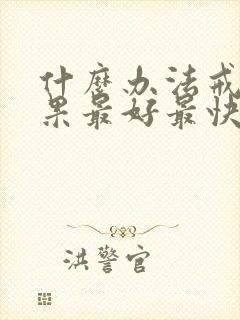 什麼办法戒
果最好最快
洪警官